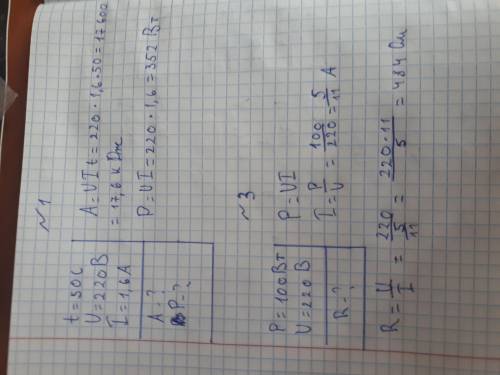 ~1
t=50c
U=220В
I=1,6А
A-?
P-?
A=UIt=220·1,6·50=17600
=17,6 кДж
P=UI=220·1,6=352 Вт
~3
P=100Вт
U=220 В
R-?
P=UI
I=P/U=100/220=5/11 A
R=U/I=220/(5/11)=220·11/5=484 Ом